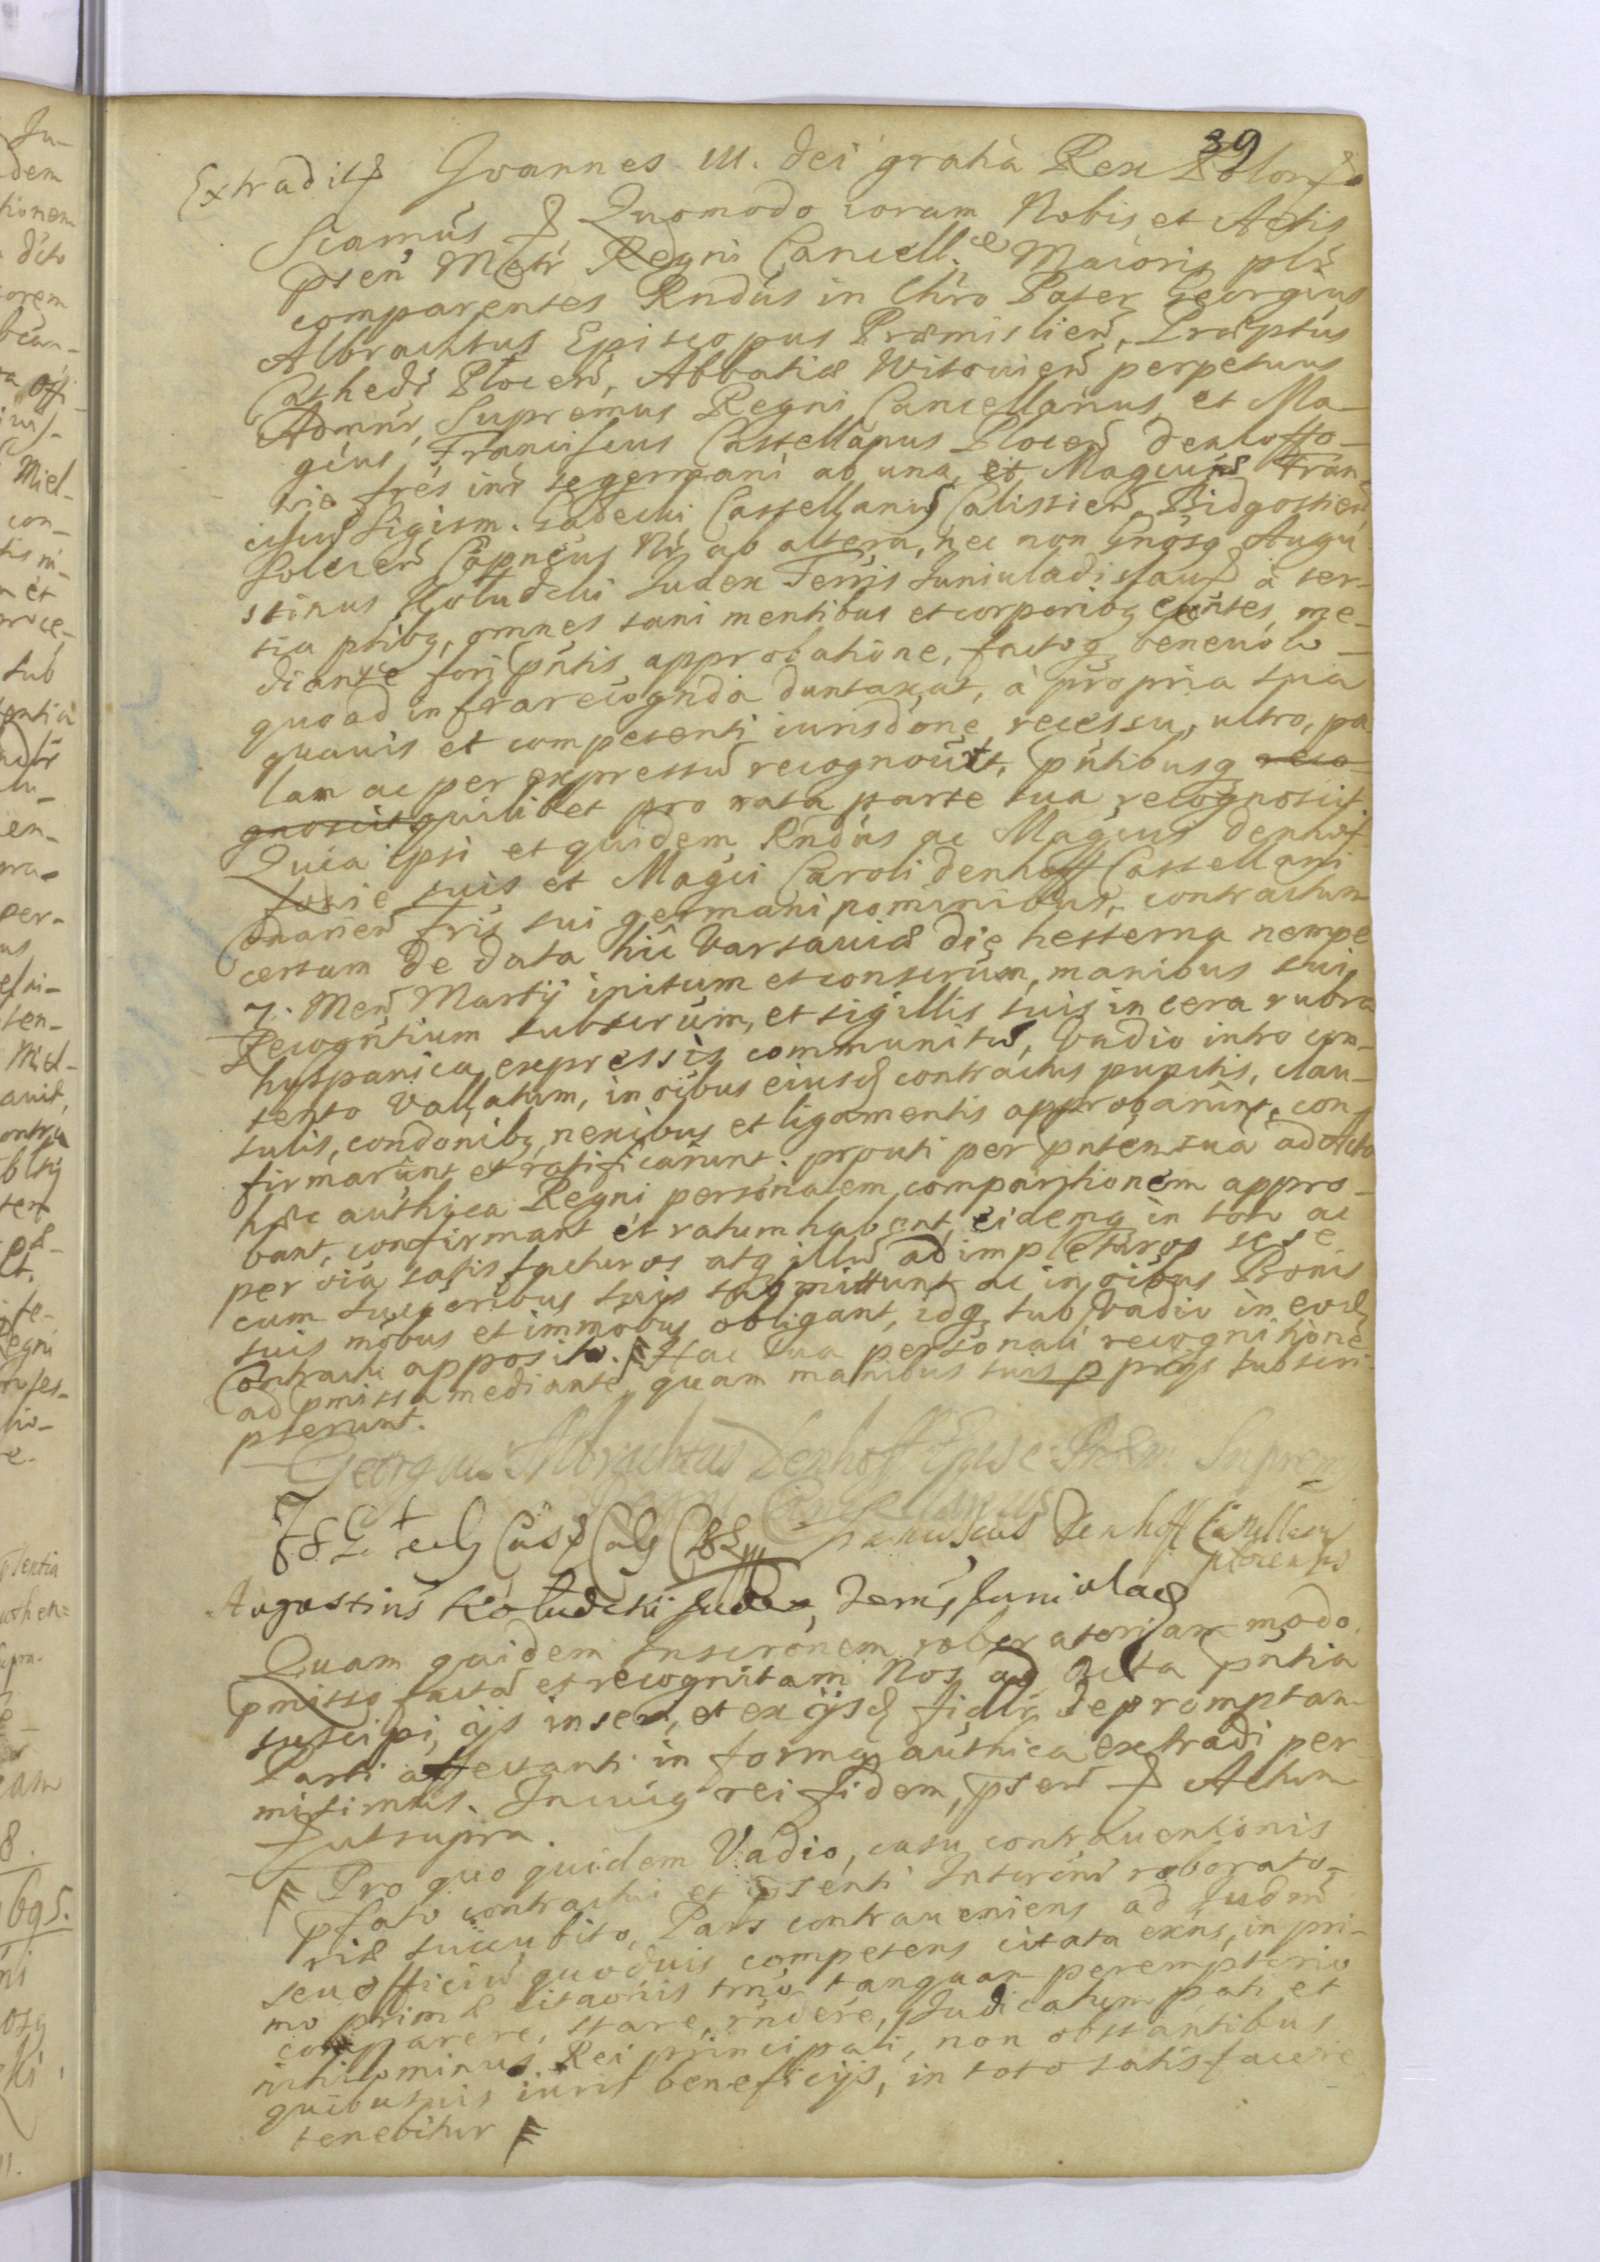 39
Extradit Joannes III. Dei gratia Rex Polon
Scamus & Quomodo coram Nobis et Actis
pnsen Metr Regni Cancell. Maioris plr
comparentes Rndus in Chro Pater Georgius
Albrachtus Episcopus Præmislien, Præptus
Cathedr Plocen, Abbatiæ Witovien perpetuus
Admnr, Supremus Regni Cancellarius, et Ma-
gcus Franciscus Castellanus Plocen Denhoffo-
wie frēs inr se germani ab una, et Magcus Fran-
ciscus Sigism. Gałecki Castellanus Calissien, Bidgostien
Solecen Capneus Nr ab altera, nec non Gnosq Augu-
stinus Kołudzki Judex Terris Juniuladislau à ter-
tia ptibq, omnes sani mentibus et corporibq exntes, me-
diante fori pntis approbatione, factoq benevolo
quoad infrarecognda duntaxat, à propria sua
quavis et competenti iurisdone recessu, ultro, pa
lam ac per expressu recognorunt, pntibusq reco-
gnoscit quilibet pro rata parte sua recognoscit.
Quia ipsi et quidem Rndus ac Magcus Denhof-
fowie suis et Magci Caroli Denhoff Castellani
Conarien fris sui germani nominibus, contractum
certum de data hic Varsaviæ die hesterna nempe
7. Men Martij initum et conscrum, manibus sui
Recogntium subscrum, et sigillis suis in cera rubra
hyspanica expressis communitu, Vadio intro con-
tento Vallatum, in oibus eiusd contractus punctis, clau-
sulis, condonibq, nexibus et ligamentis approbarunt, con-
firmarunt et ratificarunt. prouti per pntem sua ad Acta
hæc authca Regni personalem comparitionem appro-
bant, confirmant et ratum habent, eidemq in toto ac
per oia satisfacturos atq illu adimpleturos sese
cum succoribus suis submittunt ac in oibus Bonis
suis mobus et immobus obligant, idq sub Vadio in eod
Contractu apposito. Hac sua personali recognitione
ad pmissa mediante, quam manibus suis pprijs subscri-
pserunt.
Georgius Albrachtus Denhoff Episc. Præm: Suprem
Regni Cancellarius
Franciscus Denhoff Castellanus
Plocensis
Augustinus Kołudzki Judex Terris Juniulad
Quam quidem Inscronem roboratoriam modo
pmisso facta et recognitam Nos ad Acta pntia
suscipi, ijs inseri, et ex ijsd fidlr depromptam
Parti affectanti in forma authica extradi per-
misimus. In cuiq rei fidem, psen & Actum
ut supra.
Pro quo quidem Vadio, casu contraventionis
pfato contractui et psenti Inscrōni roborato-
riæ succubito, Pars contraveniens ad Judm
seu officiu quoduis competens citata exns, in pri-
mo primæ citaonis trno tanquam peremptorio
comparere, stare, rndere, Judicatum pati et
nihilominus Rei principali, non obstantibus
quibusuis iuris beneficijs, in toto satisfacere
tenebitur